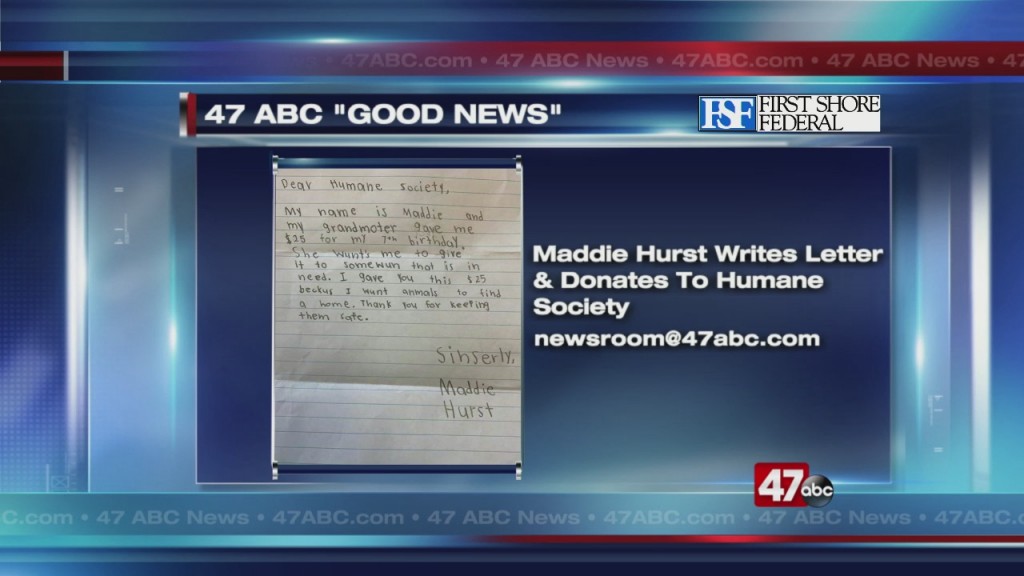 47ABC.com • 47 ABC News • 47ABC.com • 47 ABC News • 47
47 ABC "GOOD NEWS"
FSF FIRST SHORE
FEDERAL
Dear Humane Society,
My name is Maddie and
my grandmoter gave me
$25 for my 7th birthday.
She wunts me to give
it to somewun that is in
need. I gave you this $25
beckus I wunt anmals to find
a home. Thank you for keeping
them safe.
Sinserly,
Maddie
Hurst
Maddie Hurst Writes Letter
& Donates To Humane
Society
newsroom@47abc.com
47abc
C.com • 47 ABC News • 47ABC.com • 47 ABC News • 47ABC.com • 47 ABC News • 47ABC.c